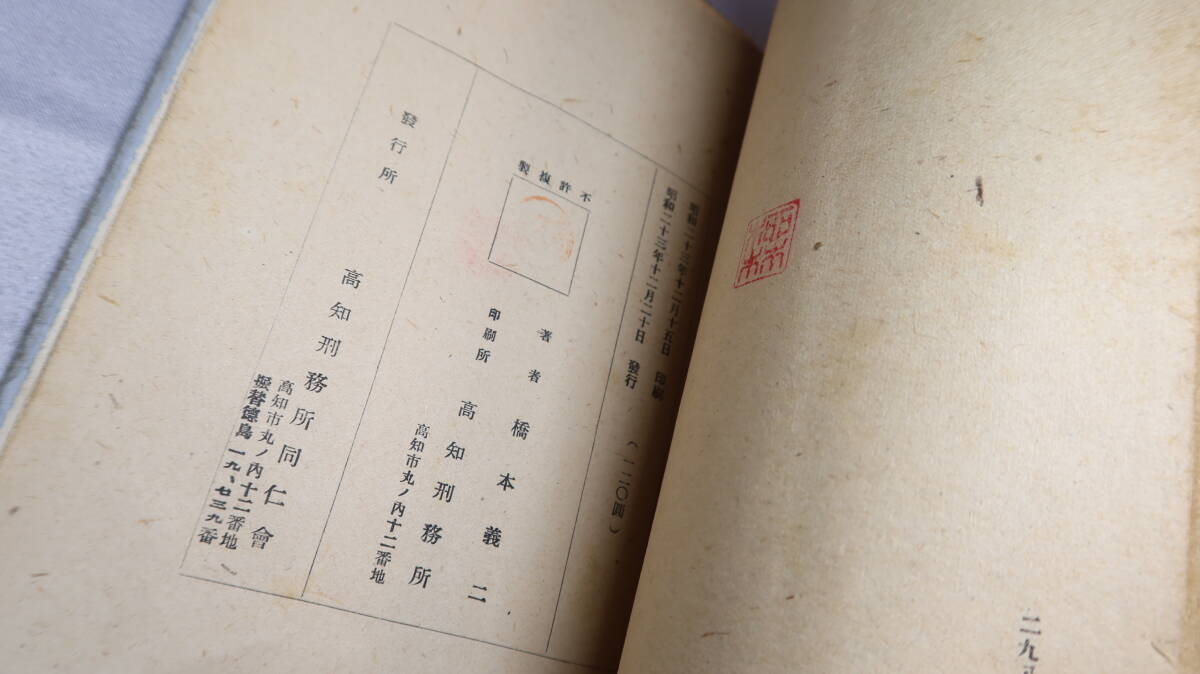 二九
昭和二十三年十二月十五日 印刷
昭和二十三年十二月二十日 發行
(一二〇四)
不許複製
著者 橋本義二
印刷所 高知刑務所
高知市丸ノ内十二番地
發行所 高知刑務所同仁會
高知市丸ノ内十二番地
振替德島一九、七三九番